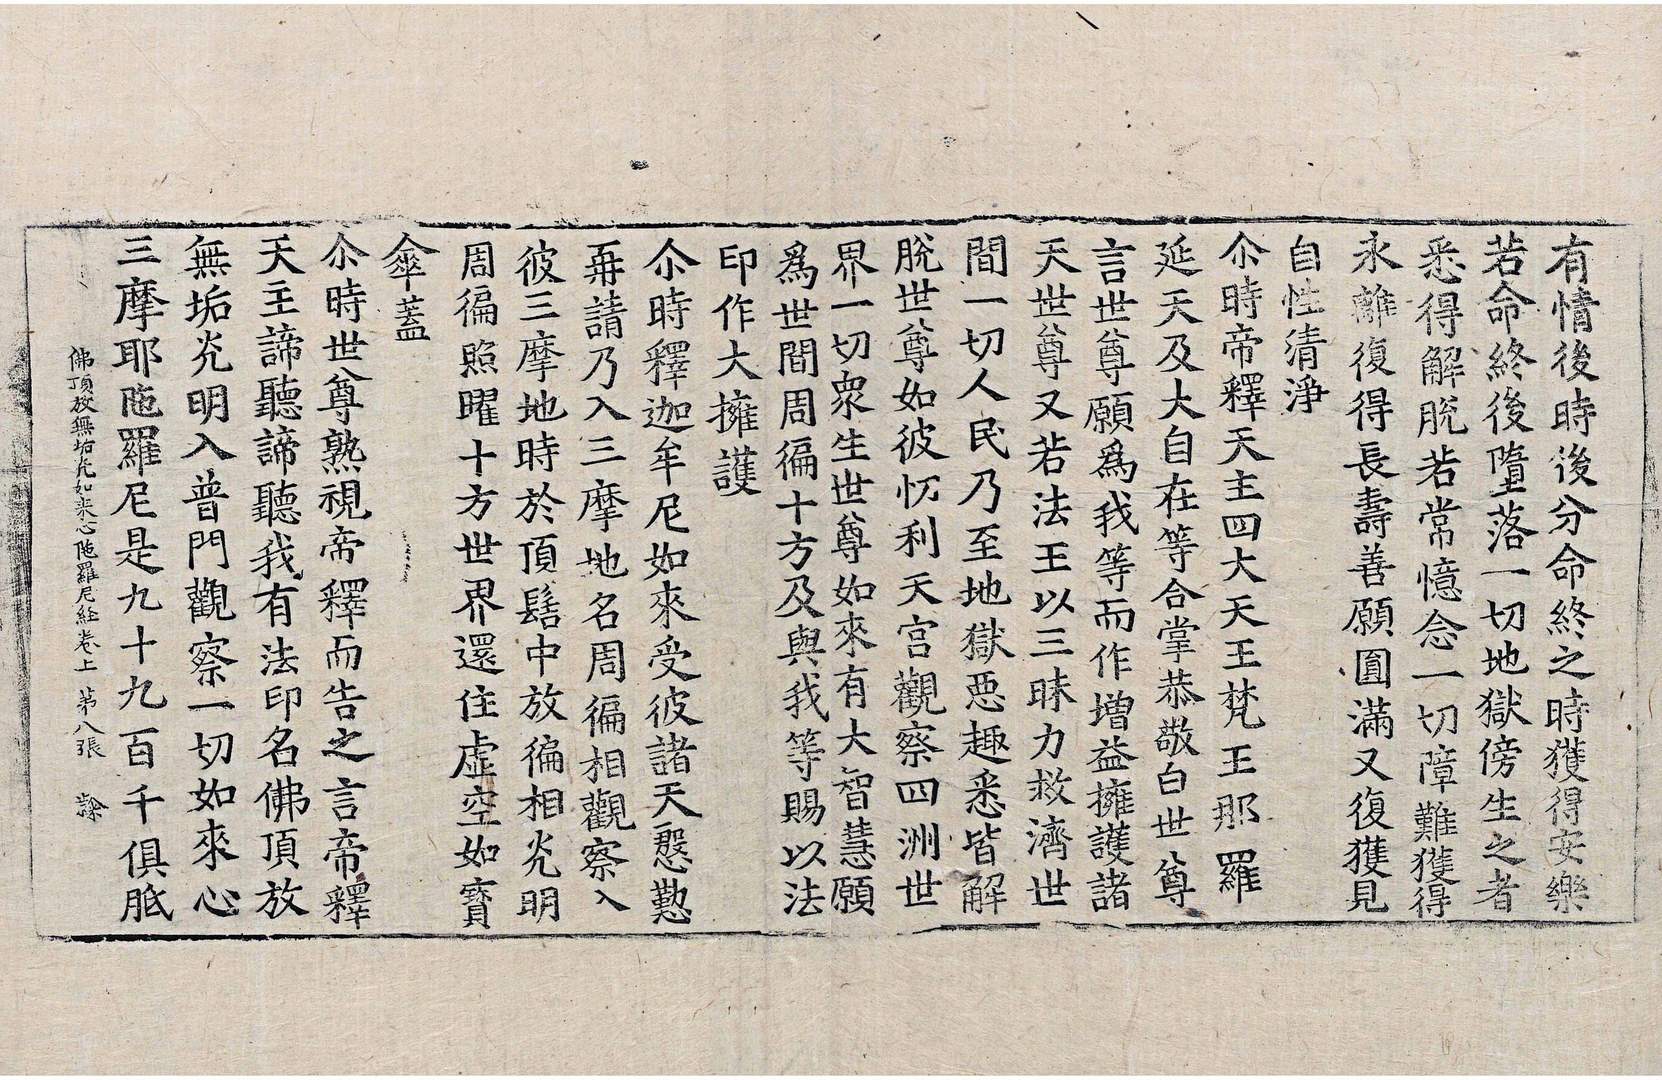 有情後時後分命終之時獲得安樂
若命終後墮落一切地獄傍生之者
悉得解脫若常憶念一切障難獲得
永離復得長壽善願圓滿又復獲見
自性清淨
尒時帝釋天主四大天王梵王那羅
延天及大自在等合掌恭敬白世尊
言世尊願爲我等而作增益擁護諸
天世尊又若法王以三昧力救濟世
間一切人民乃至地獄惡趣悉皆解
脫世尊如彼忉利天宮觀察四洲世
界一切衆生世尊如來有大智慧願
爲世間周徧十方及與我等賜以法
印作大擁護
尒時釋迦牟尼如來受彼諸天慇懃
再請乃入三摩地名周徧相觀察入
彼三摩地時於頂髻中放徧相光明
周徧照曜十方世界還住虛空如寶
傘蓋
尒時世尊熟視帝釋而告之言帝釋
天主諦聽諦聽我有法印名佛頂放
無垢光明入普門觀察一切如來心
三摩耶陁羅尼是九十九百千俱胝
佛頂放無垢光如来心陁羅尼経卷上 苐八張